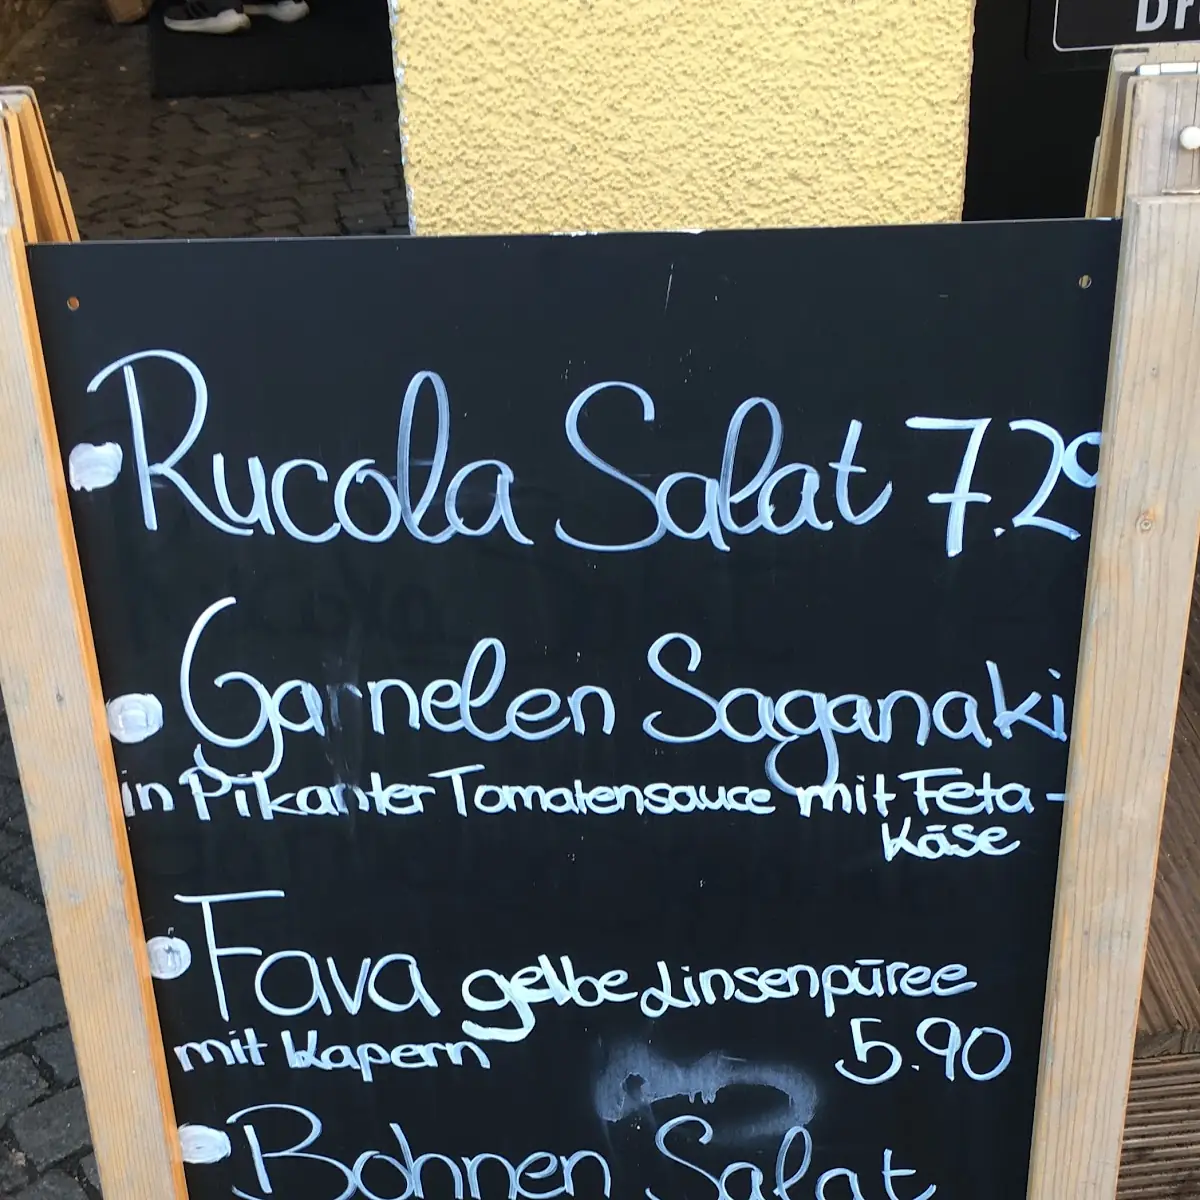 Dr
Rucola Salat 7.20
Garnelen Saganaki
in Pikanter Tomatensauce mit Feta-
Käse
Fava gelbe Linsenpüree
mit Kapern 5.90
Bohnen Salat